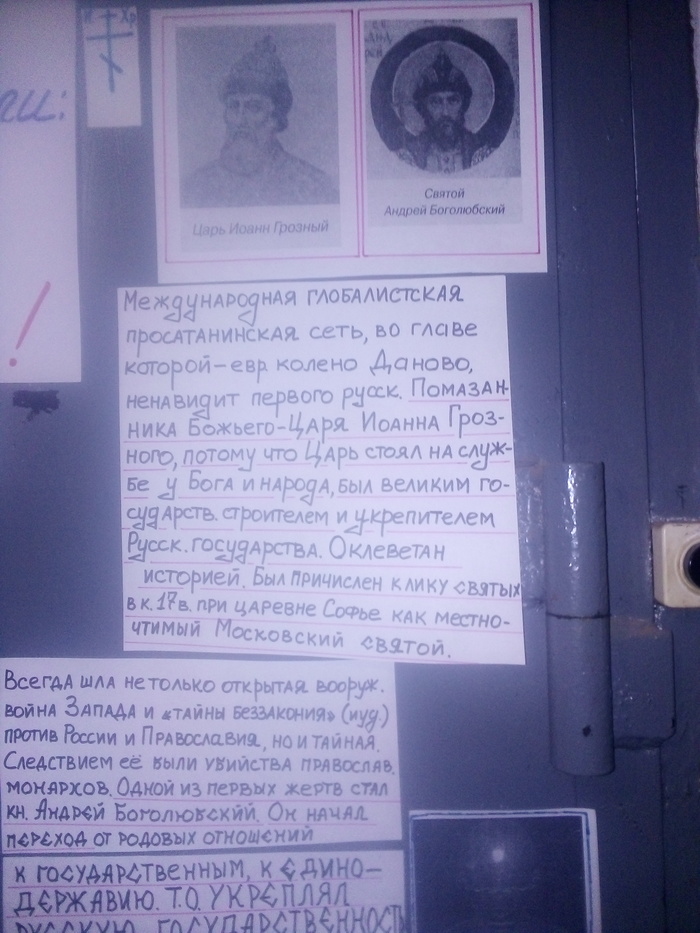 И Хр
ли:
!
Царь Иоанн Грозный
Святой
Андрей Боголюбский
Международная глобалистская
просатанинская сеть, во главе
которой – евр. колено Даново,
ненавидит первого русск. Помазан-
ника Божьего-Царя Иоанна Гроз-
ного, потому что Царь стоял на служ-
бе у Бога и народа, был великим го-
сударств. строителем и укрепителем
Русск. государства. Оклеветан
историей. Был причислен клику святых
в к. 17 в. при царевне Софье как местно-
чтимый Московский святой.
Всегда шла не только открытая вооруж.
война Запада и «тайны беззакония» (иуд.)
против России и Православия, но и тайная.
Следствием её были убийства православ.
монархов. Одной из первых жертв стал
кн. Андрей Боголюбский. Он начал
переход от родовых отношений
к государственным, к едино-
державию. Т.о. укреплял
русскую государственность